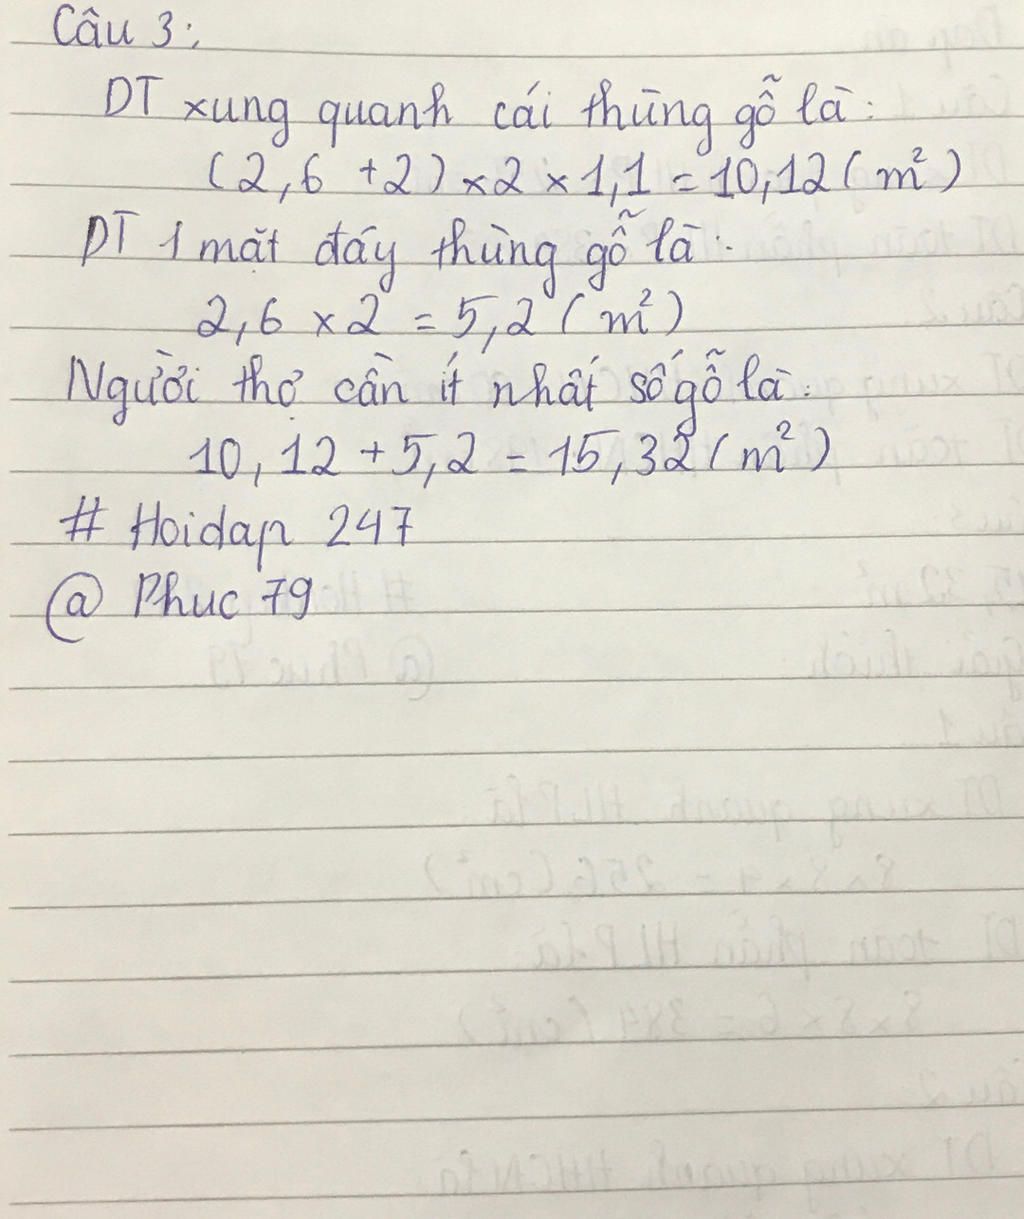 Câu 3:
DT xung quanh cái thùng gỗ là:
(2,6 +2) x 2 x 1,1 = 10,12 (m²)
DT 1 mặt đáy thùng gỗ là:
2,6 x 2 = 5,2 (m²)
Người thợ cần ít nhất số gỗ là:
10,12 + 5,2 = 15,32 (m²)
# Hoidap 247
@ Phuc 79